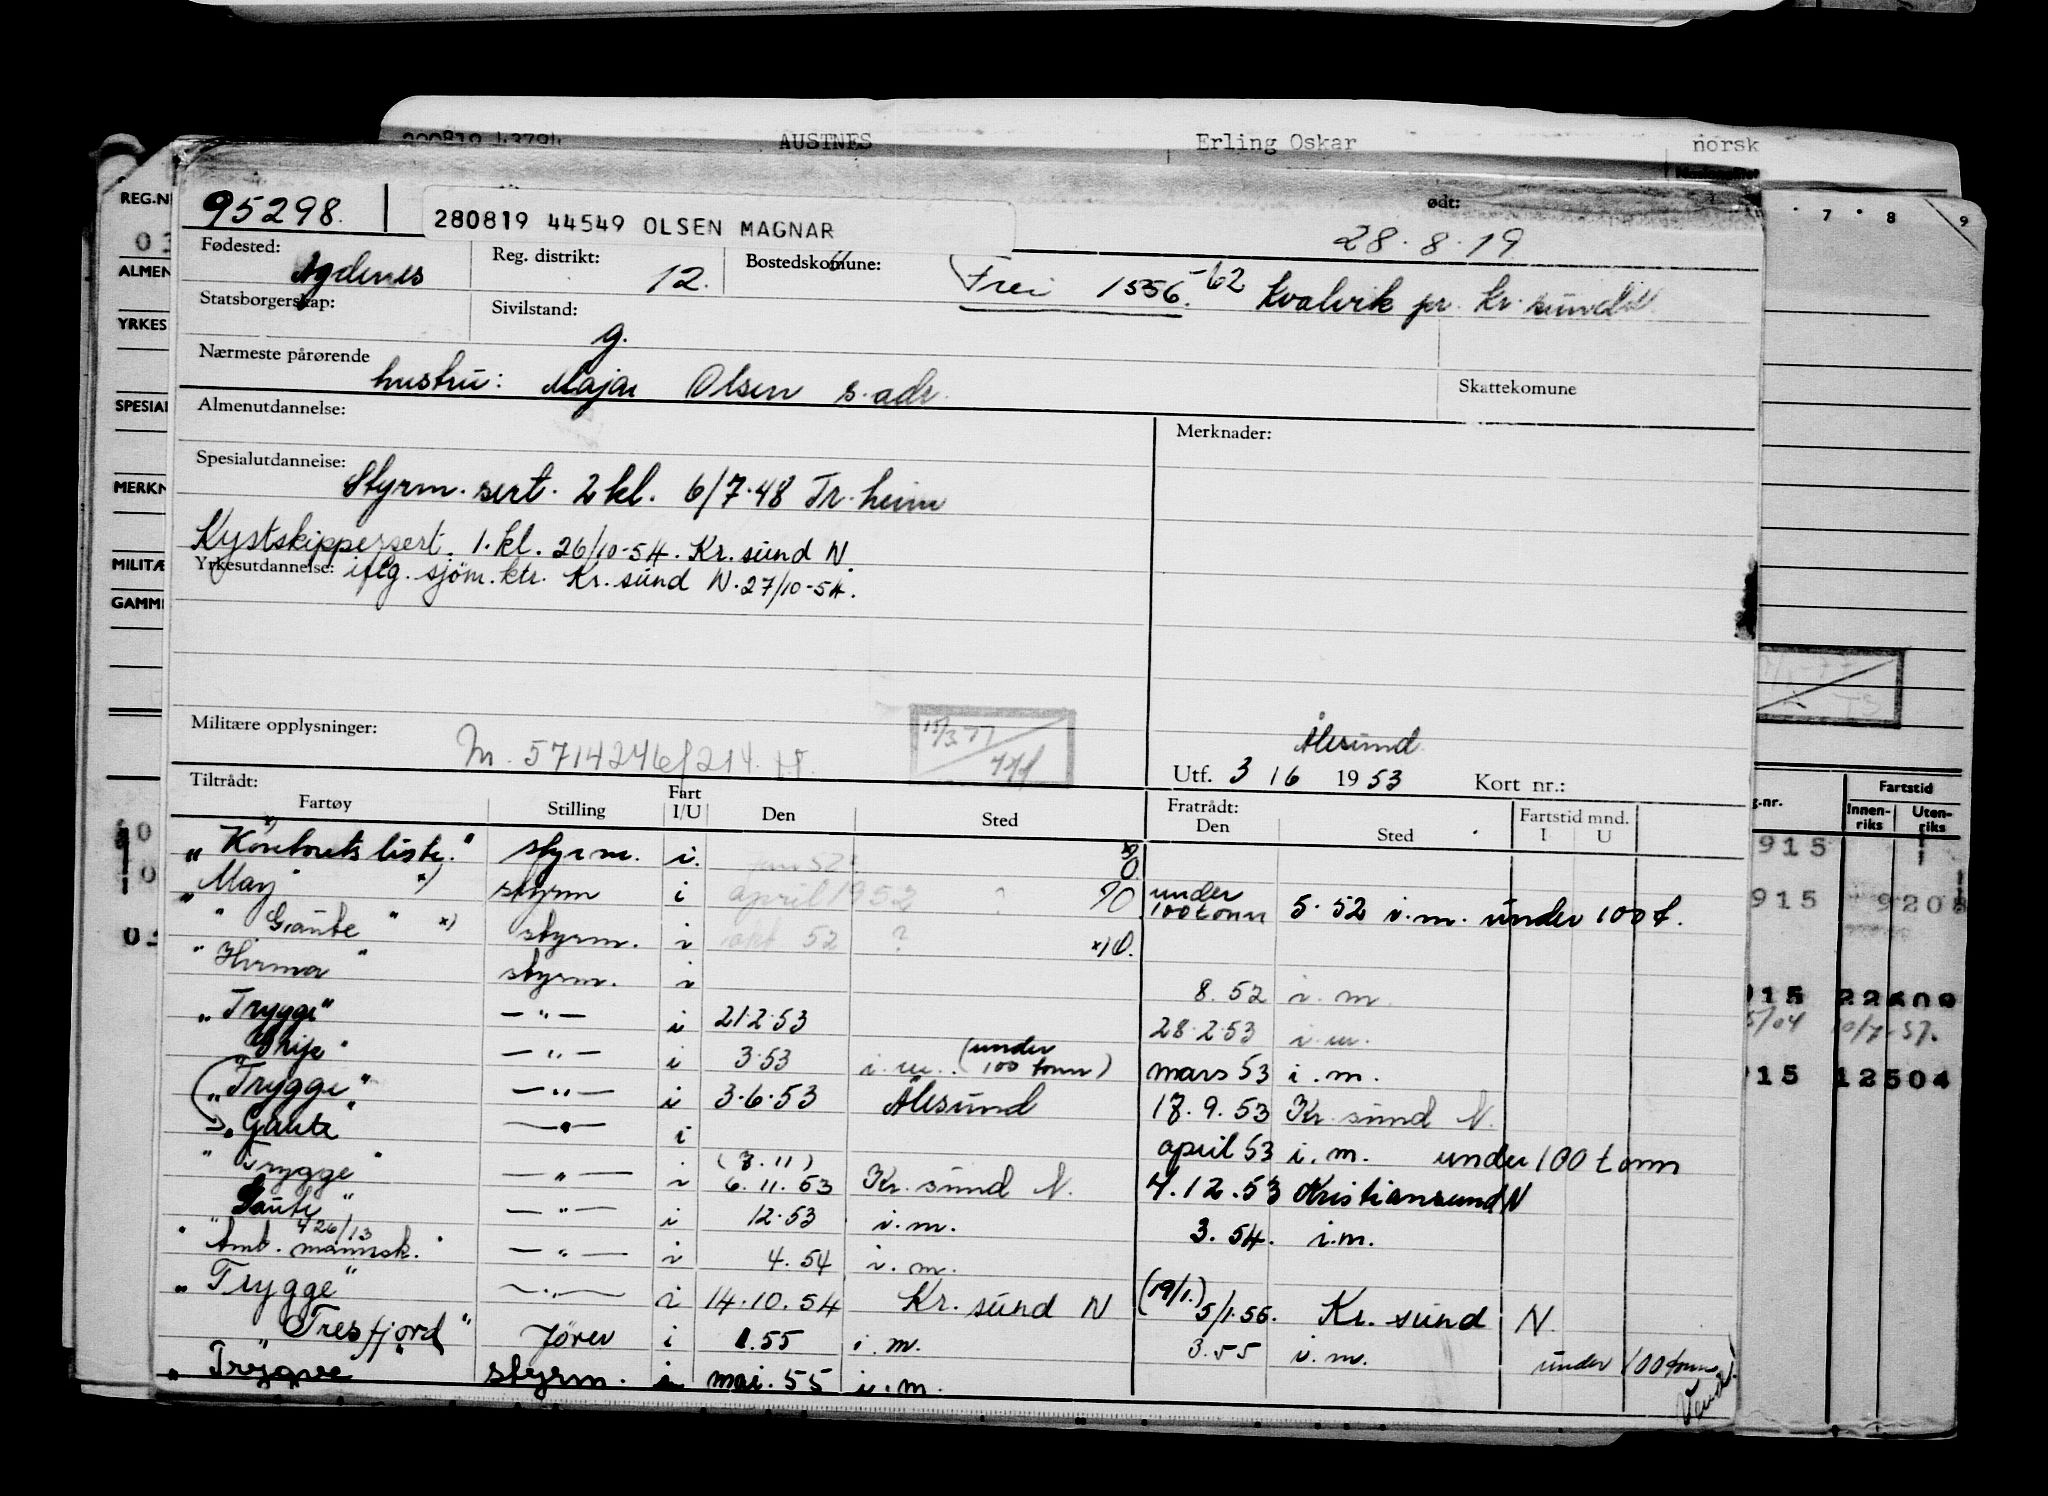 290819 43794 AUSTNES Erling Oskar norsk
REG.N
95298. 280819 44549 OLSEN MAGNAR ødt: 28.8.19
7 8 9
Fødested: Agdenes Reg. distrikt: 12. Bostedskomune: Frei 1556.-62 Kvalvik pr. Kr.sund
ALMEN
Statsborgerskap: Sivilstand: g.
YRKES
Nærmeste pårørende hustru: Maja Olsen s. adr. Skattekomune
SPESIAL
Almenutdannelse: Merknader:
Spesialutdannelse: Styrm. sert. 2 kl. 6/7.48 Tr.heim
MERKN
Kystskippersert. 1. kl. 26/10-54. Kr. sund N.
MILITÆ
Yrkesutdannelse: iflg. sjøm. ktr. Kr. sund N. 27/10-54.
GAMM
Militære opplysninger: 5714246/214
Ålesund
Utf. 3/6 1953 Kort nr.:
Tiltrådt: Fratrådt:
Fartøy Stilling Fart I/U Den Sted Den Sted Fartstid mnd. I U
g.nr. Fartstid Innen-riks Uten-riks
"Kontorets liste." styrm. i.
915
"May" x) styrm i april 1952 ? under 100 tonn 5.52 i.m. under 100 t.
915 9208
"Gaute" x) styrm. i okt 52 ? x)
"Hirma" styrm. i 8.52 i.m.
"Trygge" — " — i 21.2.53 28.2.53 i.m.
15 22609
5/04 10/7-57.
— " — i 3.53 i.m. (under 100 tonn) mars 53 i.m.
15 12504
"Trygge" — " — i 3.6.53 Ålesund 17.9.53 Kr. sund N.
"Gaute" — " — i april 53 i.m. under 100 tonn
"Trygge" — " — i 6.11.53 Kr. sund N. 7.12.53 Kristiansund N
"Gaute" — " — i 12.53 i.m. 3.54. i.m.
426/13
"Amb. mannsk." — " — i 4.54 i.m.
"Trygge" — " — i 14.10.54 Kr. sund N (19/1.) 5/1.55. Kr. sund N.
"Tresfjord" i 1.55 i.m. 3.55 i.m. under 100 tonn
"Trygve" styrm. i mai. 55 i.m.
Vend!